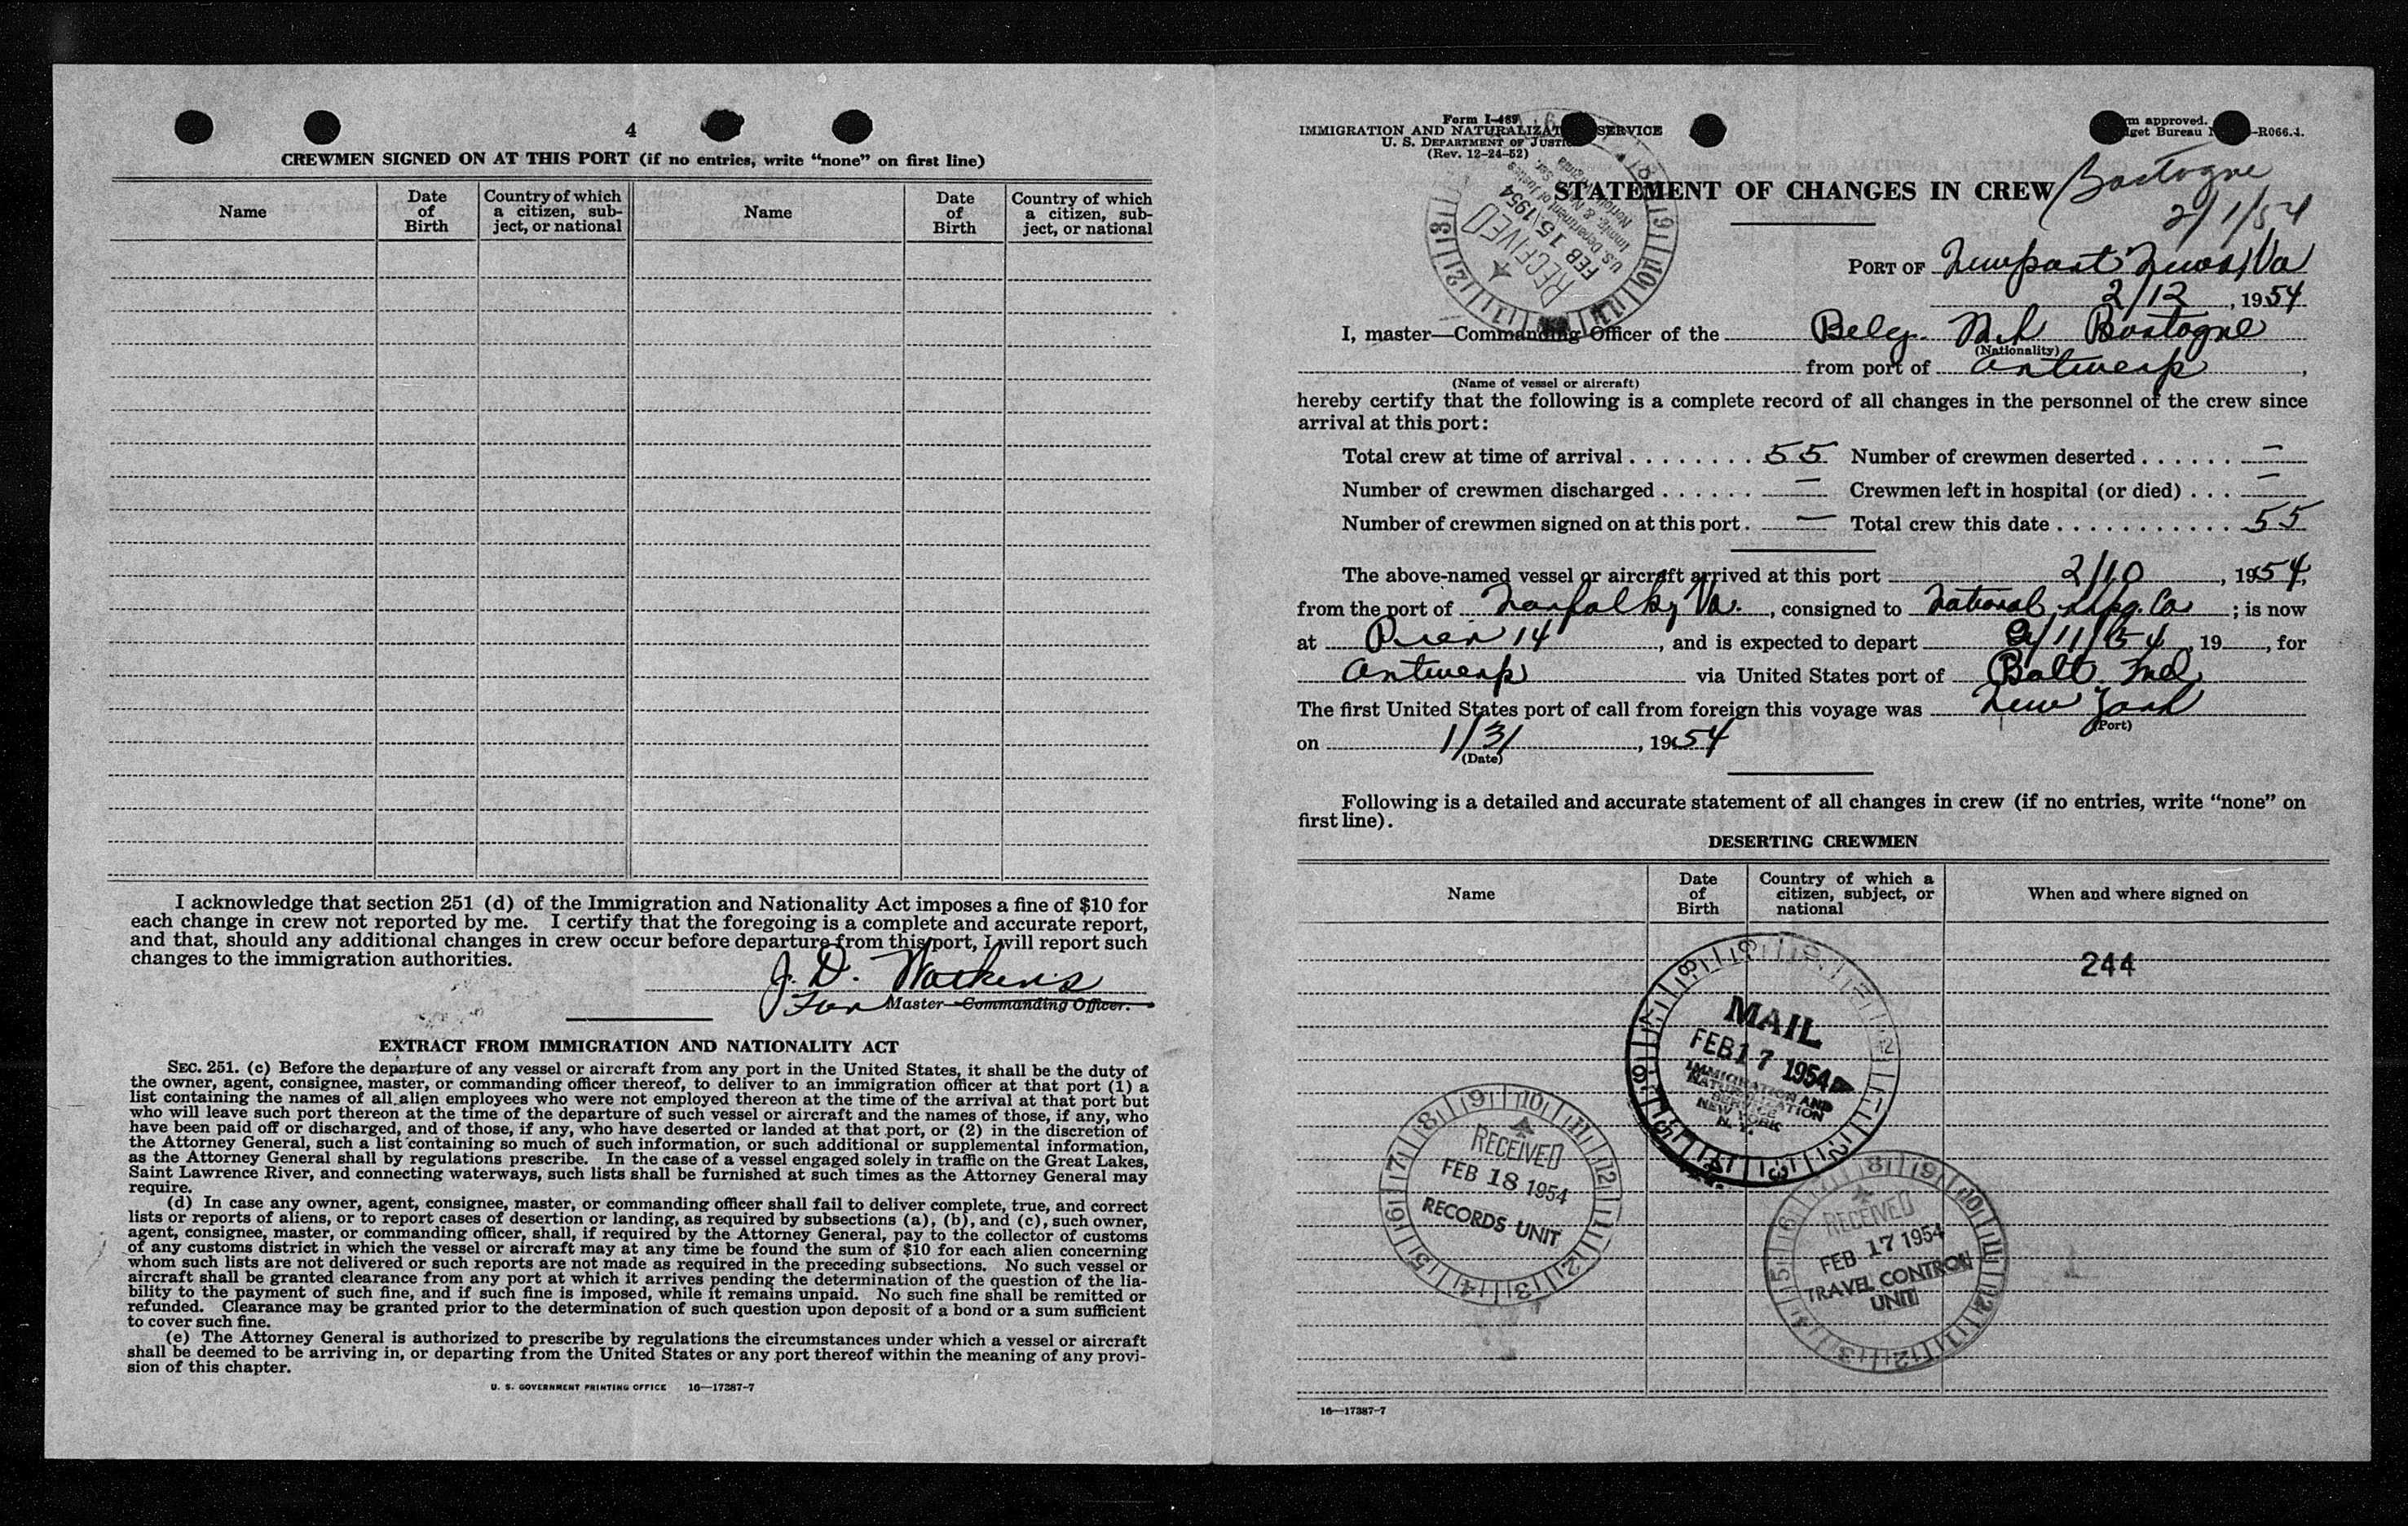 4
CREWMEN SIGNED ON AT THIS PORT (if no entries, write “none” on first line)
Name
Date of Birth
Country of which a citizen, sub-ject, or national
Name
Date of Birth
Country of which a citizen, sub-ject, or national
I acknowledge that section 251 (d) of the Immigration and Nationality Act imposes a fine of $10 for
each change in crew not reported by me. I certify that the foregoing is a complete and accurate report,
and that, should any additional changes in crew occur before departure from this port, I will report such
changes to the immigration authorities.
J. D. Watkins
For Master—Commanding Officer.
EXTRACT FROM IMMIGRATION AND NATIONALITY ACT
SEC. 251. (c) Before the departure of any vessel or aircraft from any port in the United States, it shall be the duty of
the owner, agent, consignee, master, or commanding officer thereof, to deliver to an immigration officer at that port (1) a
list containing the names of all alien employees who were not employed thereon at the time of the arrival at that port but
who will leave such port thereon at the time of the departure of such vessel or aircraft and the names of those, if any, who
have been paid off or discharged, and of those, if any, who have deserted or landed at that port, or (2) in the discretion of
the Attorney General, such a list containing so much of such information, or such additional or supplemental information,
as the Attorney General shall by regulations prescribe. In the case of a vessel engaged solely in traffic on the Great Lakes,
Saint Lawrence River, and connecting waterways, such lists shall be furnished at such times as the Attorney General may
require.
(d) In case any owner, agent, consignee, master, or commanding officer shall fail to deliver complete, true, and correct
lists or reports of aliens, or to report cases of desertion or landing, as required by subsections (a), (b), and (c), such owner,
agent, consignee, master, or commanding officer, shall, if required by the Attorney General, pay to the collector of customs
of any customs district in which the vessel or aircraft may at any time be found the sum of $10 for each alien concerning
whom such lists are not delivered or such reports are not made as required in the preceding subsections. No such vessel or
aircraft shall be granted clearance from any port at which it arrives pending the determination of the question of the lia-
bility to the payment of such fine, and if such fine is imposed, while it remains unpaid. No such fine shall be remitted or
refunded. Clearance may be granted prior to the determination of such question upon deposit of a bond or a sum sufficient
to cover such fine.
(e) The Attorney General is authorized to prescribe by regulations the circumstances under which a vessel or aircraft
shall be deemed to be arriving in, or departing from the United States or any port thereof within the meaning of any provi-
sion of this chapter.
U. S. GOVERNMENT PRINTING OFFICE 16—17387-7
Form I-489
IMMIGRATION AND NATURALIZATION SERVICE
U. S. DEPARTMENT OF JUSTICE
(Rev. 12-24-52)
approved.
Bureau -R066.4.
RECEIVED
FEB 15 1954
U.S. Department of Justice
STATEMENT OF CHANGES IN CREW
Bastogne
2/1/54
PORT OF Newport News, Va
2/12, 1954
I, master—Commanding Officer of the Belg. M.S. Bastogne
(Nationality)
from port of Antwerp,
(Name of vessel or aircraft)
hereby certify that the following is a complete record of all changes in the personnel of the crew since
arrival at this port:
Total crew at time of arrival . . . . . . . . 55 Number of crewmen deserted . . . . . . —
Number of crewmen discharged . . . . . . — Crewmen left in hospital (or died) . . . —
Number of crewmen signed on at this port . — Total crew this date . . . . . . . . . . . . 55
The above-named vessel or aircraft arrived at this port 2/10, 1954,
from the port of Norfolk, Va., consigned to National Shpg. Co; is now
at Pier 14, and is expected to depart 2/11/54, 19, for
Antwerp via United States port of Balt. Md
The first United States port of call from foreign this voyage was New York
(Port)
on 1/31, 1954
(Date)
Following is a detailed and accurate statement of all changes in crew (if no entries, write “none” on
first line).
DESERTING CREWMEN
Name
Date of Birth
Country of which a citizen, subject, or national
When and where signed on
244
MAIL
FEB 17 1954
IMMIGRATION AND
NATURALIZATION
SERVICE
NEW YORK
N. Y.
RECEIVED
FEB 18 1954
RECORDS UNIT
RECEIVED
FEB 17 1954
TRAVEL CONTROL
UNIT
16—17387-7